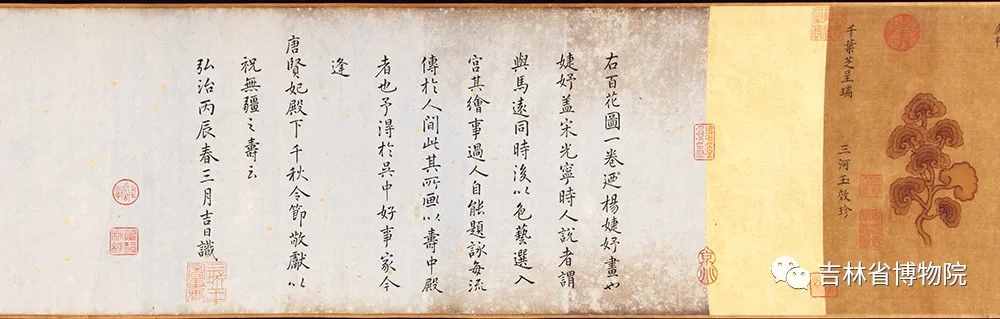 千葉芝呈瑞
三河玉效珍
右百花圖一卷迺楊婕妤畫也
婕妤盖宋光寧時人說者謂
與馬遠同時後以色藝選入
宫其繪事過人自能題詠每流
傳於人間此其所画以壽中殿
者也予得於吳中好事家今
逢
唐賢妃殿下千秋令節敬獻以
祝無疆之壽云
弘治丙辰春三月吉日識
吉林省博物院